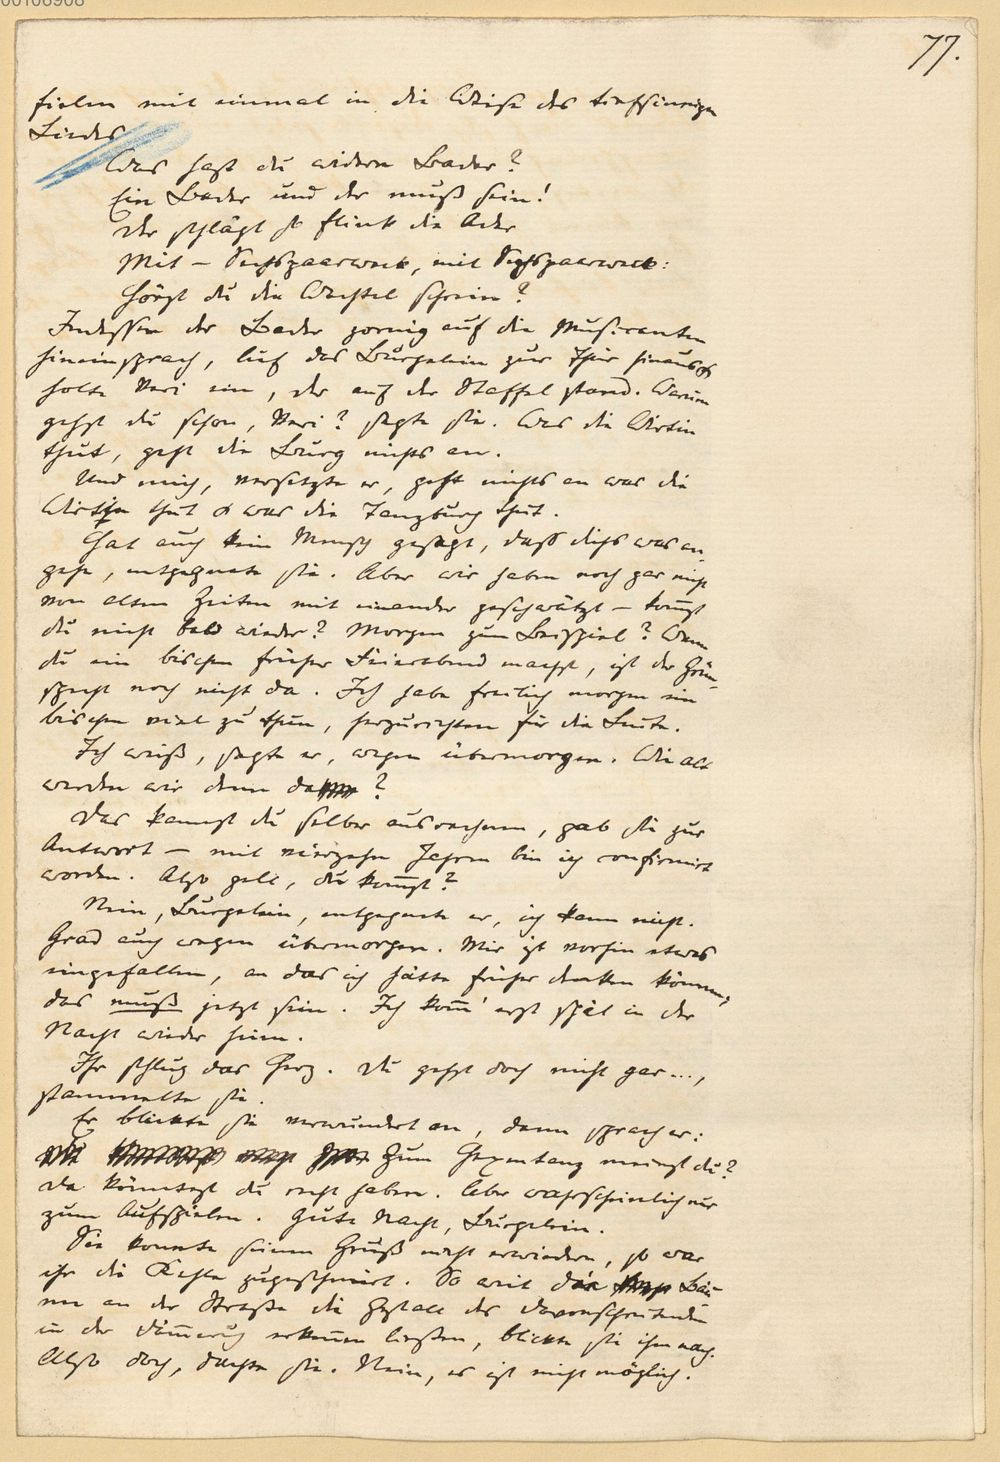 00106908
77.
fielen mit einmal in die Weise des tiefsinnigen
Liedes
Was hast du widern Bader?
Ein Bader und der muß sein!
Der schlägt so flink die Ader
Mit – Sechspaarweck, mit Sechspaarweck:
Hörst du die Wachtel schrein?
Indessen der Bader zornig auf die Musicanten
hineinsprach, lief das Burgelein zur Thür hinaus &
holte Veri ein, der auf der Staffel stand. Warum
gehst du schon, Veri? sagte sie. Was die Wirtin
thut, geht die Burg nichts an.
Und mich, versetzte er, geht nichts an was die
Wirtin thut & was die Tanzburg thut.
Hat auch kein Mensch gesagt, dass dichs was an-
gehe, entgegnete sie. Aber wir haben noch gar nicht
von alten Zeiten mit einander geschwätzt – kommst
du nicht bald wieder? Morgen zum Beispiel? Wenn
du ein bischen früher Feierabend machst, ist der Grün-
specht noch nicht da. Ich habe freilich morgen ein
bischen viel zu thun, herzurichten für die Leute.
Ich weiß, sagte er, wegen übermorgen. Wie alt
werden wir denn da?
Das kannst du selber ausrechnen, gab sie zur
Antwort – mit vierzehn Jahren bin ich confirmirt
worden. Also gelt, du kommst?
Nein, Burgelein, entgegnete er, ich kann nicht.
Grad auch wegen übermorgen. Mir ist vorhin etwas
eingefallen, an das ich hätte früher denken können,
das muß jetzt sein. Ich komm' erst spät in der
Nacht wieder heim.
Ihr schlug das Herz. Du gehst doch nicht gar...,
stammelte sie.
Er blickte sie verwundert an, dann sprach er:
Zum Hexentanz meinst du?
Da könntest du recht haben. Aber wahrscheinlich nur
zum Aufspielen. Gute Nacht, Burgelein.
Sie konnte seinen Gruß nicht erwiedern, so war
ihr die Kehle zugeschnürt. So weit die Bäu-
me an der Straße die Gestalt des Davonschreitenden
in der Dämmerung erkennen ließen, blickte sie ihm nach.
Also doch, dachte sie. Nein, es ist nicht möglich.